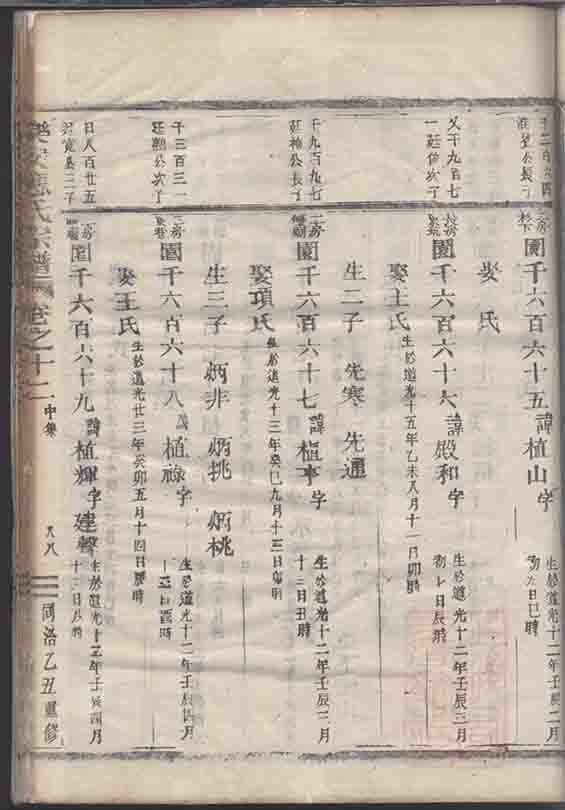 千六百六十五 諱植山 字
生於道光十二年壬辰二月
初九日巳時
娶 氏
又千九百七
長房
園千六百六十六 諱殿和 字
生於道光十二年壬辰三月
初七日辰時
娶王氏 生於道光十五年乙未八月十一日卯時
生二子 先寒 先通
千九百九七
莊神公長子
二房
園千六百六十七 諱植亭 字
生於道光十二年壬辰三月
十三日丑時
娶項氏 生於道光十三年癸巳九月十三日
生三子 炳非 炳挑 炳桃
千三百三一
廷 公次子
園千六百六十八 諱植祿 字
生於道光十二年壬辰四月
酉時
娶王氏 生於道光廿三年癸卯五月十四日
日八百廿五
三子
房
園千六百六十九 諱植輝 字建聲
生於道光十 年壬 四月
十二日 時
氏宗譜 卷之十二 中集
八八
同治乙丑重修